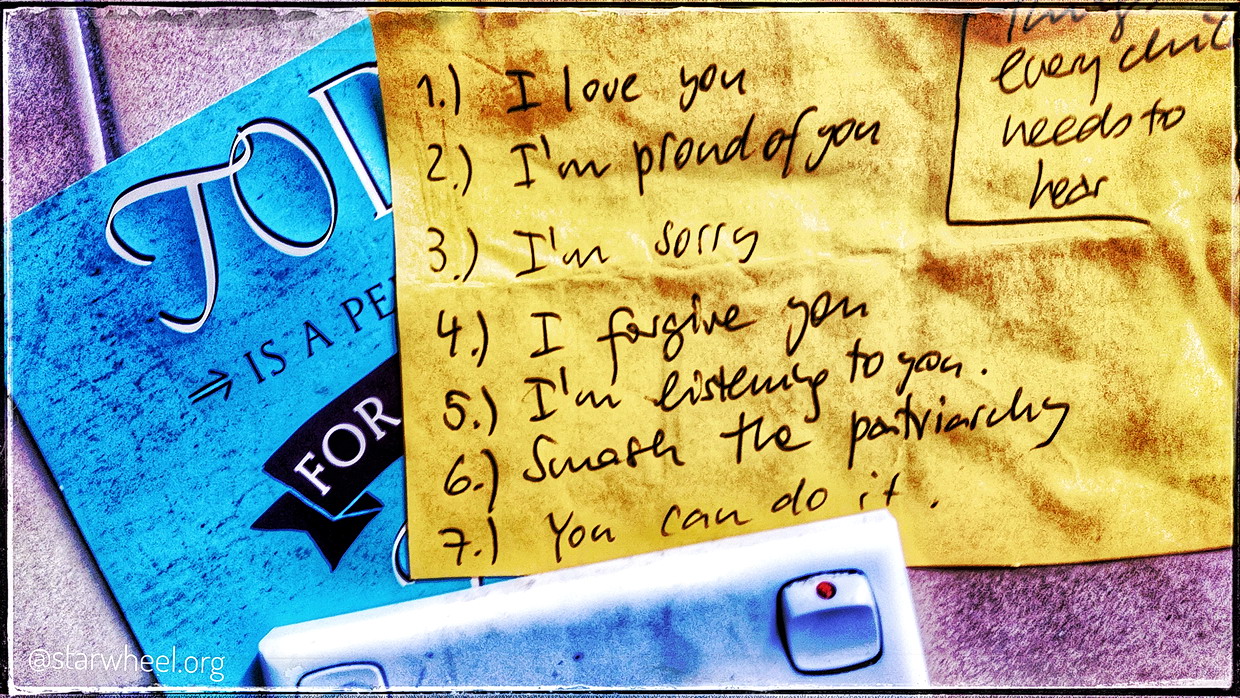 TO
IS A
FOR
1.) I love you
2.) I'm proud of you
3.) I'm sorry
4.) I forgive you
5.) I'm listening to you.
6.) Smash the patriarchy
7.) You can do it.
Things
every
needs to
hear
@starwheel.org